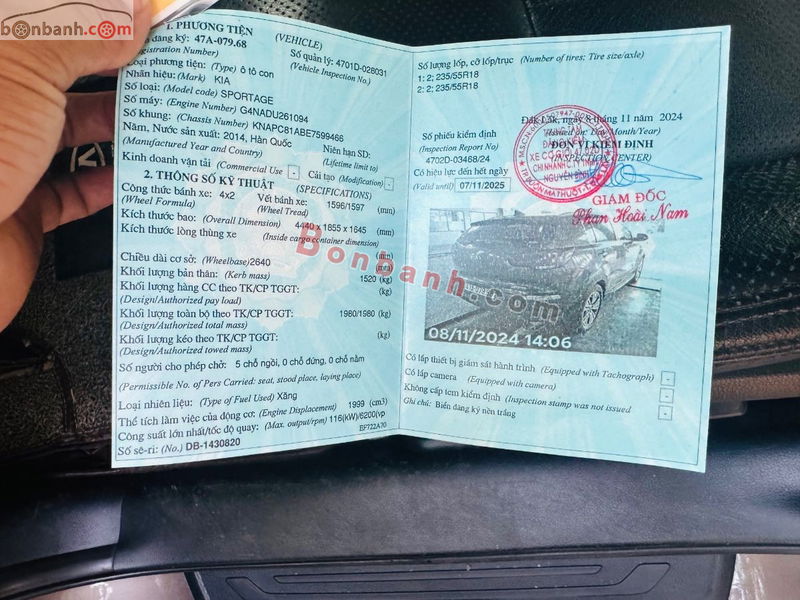 bonbanh.com
1. PHƯƠNG TIỆN (VEHICLE)
đăng ký: 47A-079.68
(Registration Number)
Số quản lý: 4701D-028031
(Vehicle Inspection No.)
Loại phương tiện: (Type) ô tô con
Nhãn hiệu: (Mark) KIA
Số loại: (Model code) SPORTAGE
Số máy: (Engine Number) G4NADU261094
Số khung: (Chassis Number) KNAPC81ABE7599466
Năm, Nước sản xuất: 2014, Hàn Quốc
(Manufactured Year and Country)
Niên hạn SD:
(Lifetime limit to)
Kinh doanh vận tải (Commercial Use) - Cải tạo (Modification) -
2. THÔNG SỐ KỸ THUẬT (SPECIFICATIONS)
Công thức bánh xe: 4x2 Vết bánh xe: 1596/1597 (mm)
(Wheel Formula) (Wheel Tread)
Kích thước bao: (Overall Dimension) 4440 x 1855 x 1645 (mm)
Kích thước lòng thùng xe (Inside cargo container dimension)
mm)
Chiều dài cơ sở: (Wheelbase) 2640 mm)
Khối lượng bản thân: (Kerb mass) 1520 (kg)
Khối lượng hàng CC theo TK/CP TGGT: (kg)
(Design/Authorized pay load)
Khối lượng toàn bộ theo TK/CP TGGT: 1980/1980 (kg)
(Design/Authorized total mass)
Khối lượng kéo theo TK/CP TGGT: (kg)
(Design/Authorized towed mass)
Số người cho phép chở: 5 chỗ ngồi, 0 chỗ đứng, 0 chỗ nằm
(Permissible No. of Pers Carried: seat, stood place, laying place)
Loại nhiên liệu: (Type of Fuel Used) Xăng
Thể tích làm việc của động cơ: (Engine Displacement) 1999 (cm3)
Công suất lớn nhất/tốc độ quay: (Max. output/rpm) 116(kW)/6200vp
Số sê-ri: (No.) DB-1430820
EF722A70
Số lượng lốp, cỡ lốp/trục (Number of tires; Tire size/axle)
1: 2; 235/55R18
2: 2; 235/55R18
Đắk Lắk, ngày 8 tháng 11 năm 2024
(Issued on: Day/Month/Year)
Số phiếu kiểm định ĐƠN VỊ KIỂM ĐỊNH
(Inspection Report No) (INSPECTION CENTER)
4702D-03468/24
Có hiệu lực đến hết ngày
(Valid until) 07/11/2025
GIÁM ĐỐC
Phan Hoài Nam
Bonbanh.com
08/11/2024 14:06
Có lắp thiết bị giám sát hành trình (Equipped with Tachograph) -
Có lắp camera (Equipped with camera) -
Không cấp tem kiểm định (Inspection stamp was not issued -
Ghi chú: Biển đăng ký nền trắng